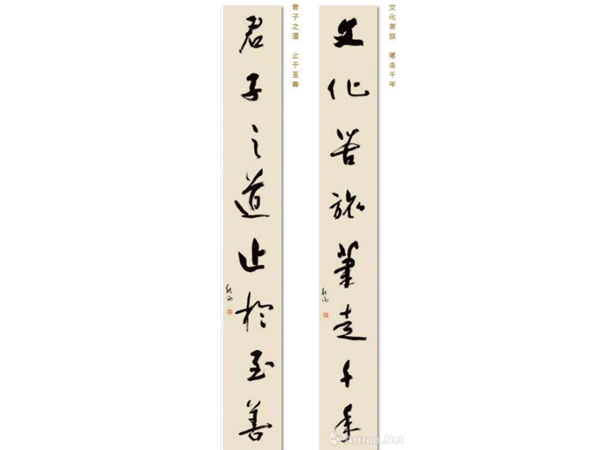 文化苦旅 笔走千年
文化苦旅筆走千年
秋雨
君子之道 止于至善
君子之道止於至善
秋雨
Artron.Net